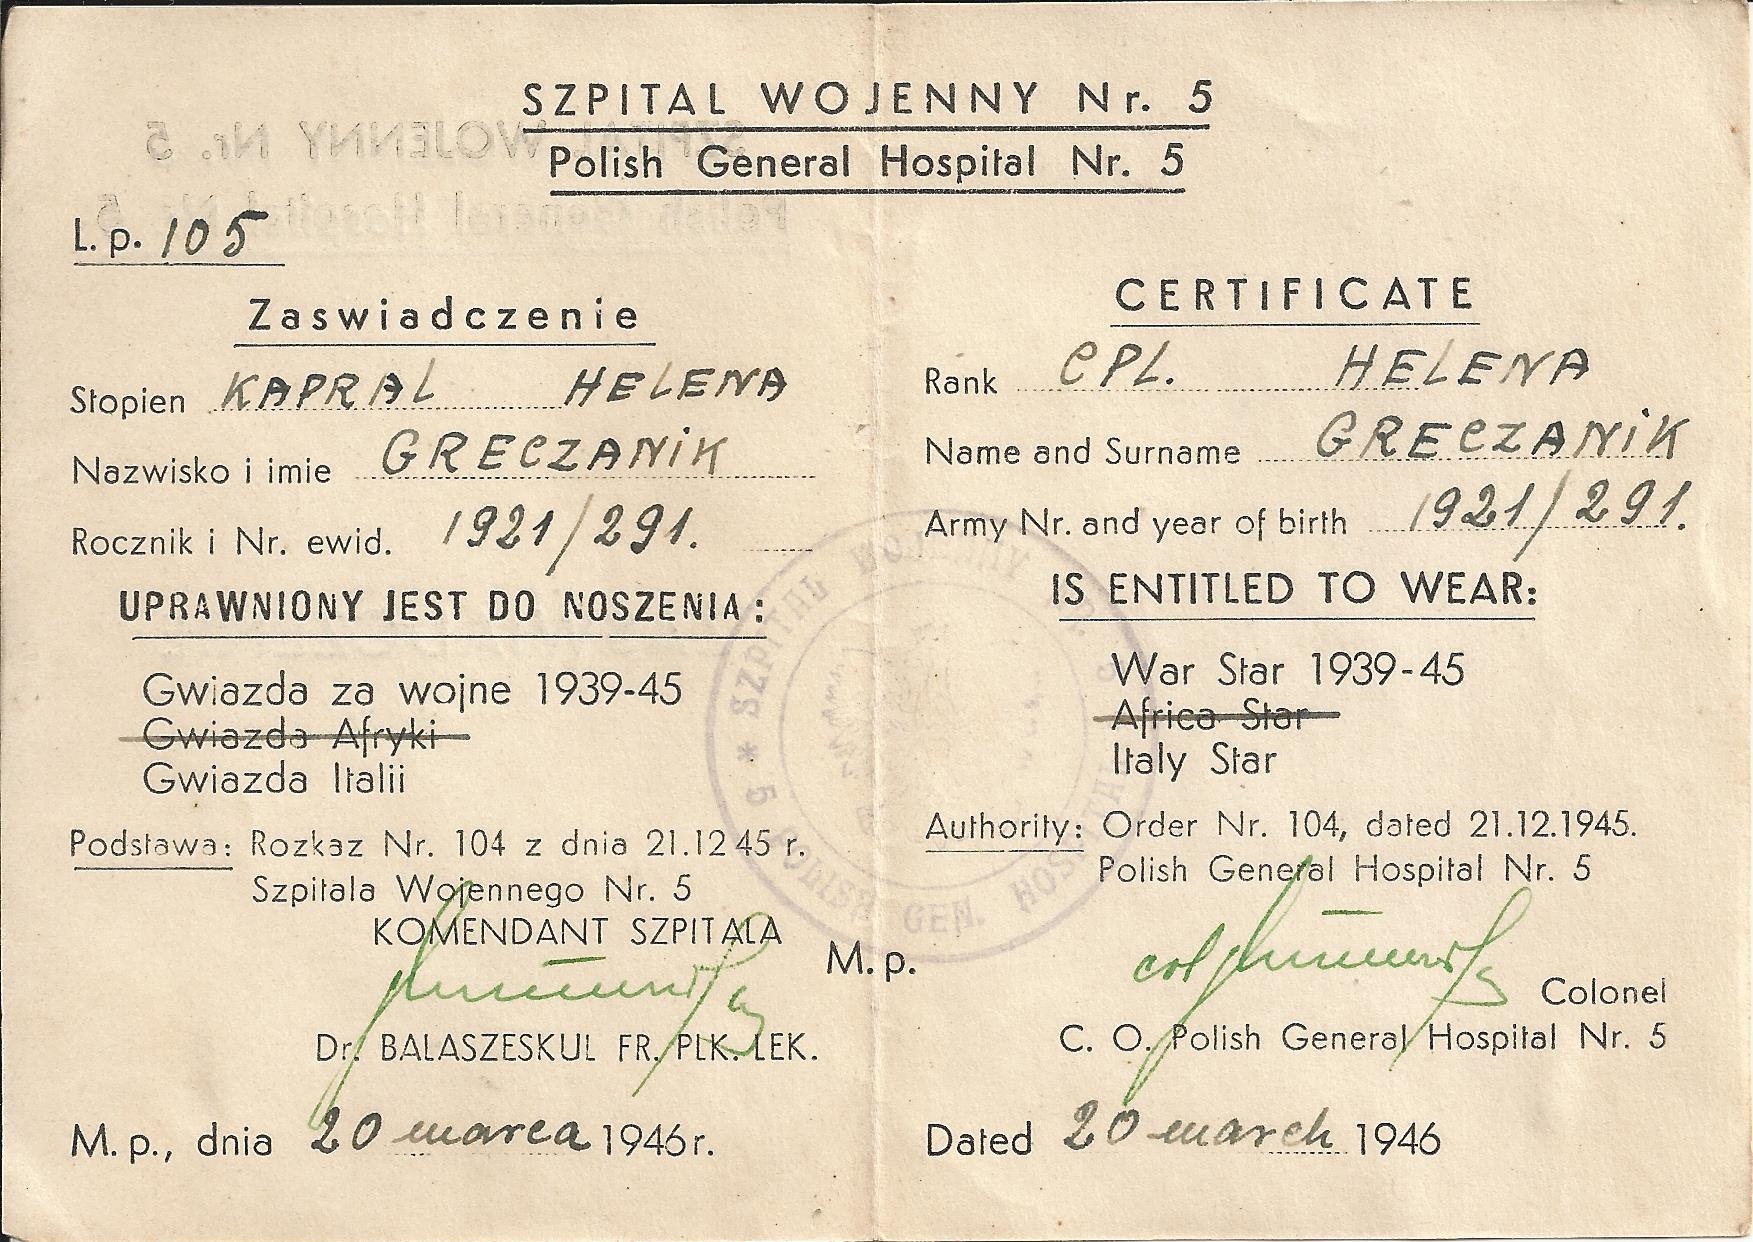 SZPITAL WOJENNY Nr. 5
Polish General Hospital Nr. 5
L. p. 105
Zaswiadczenie
Stopien KAPRAL HELENA
Nazwisko i imie GRECZANIK
Rocznik i Nr. ewid. 1921/291.
UPRAWNIONY JEST DO NOSZENIA:
Gwiazda za wojne 1939-45
Gwiazda Afryki
Gwiazda Italii
Podstawa: Rozkaz Nr. 104 z dnia 21.12 45 r.
Szpitala Wojennego Nr. 5
KOMENDANT SZPITALA
Dr. BALASZESKUL FR. PLK. LEK.
M. p., dnia 20 marca 1946 r.
CERTIFICATE
Rank CPL. HELENA
Name and Surname GRECZANIK
Army Nr. and year of birth 1921/291.
IS ENTITLED TO WEAR:
War Star 1939-45
Africa Star
Italy Star
Authority: Order Nr. 104, dated 21.12.1945.
Polish General Hospital Nr. 5
M. p.
col
Colonel
C. O. Polish General Hospital Nr. 5
Dated 20 march 1946
* SZPITAL WOJENNY Nr. 5 *
5 POLISH GEN. HOSPITAL